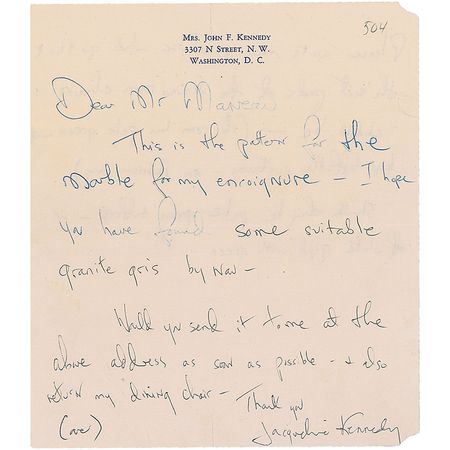 504
MRS. JOHN F. KENNEDY
3307 N STREET, N. W.
WASHINGTON, D. C.
Dear Mr
This is the pattern for the
marble for my encoignure – I hope
you have found some suitable
granite gris by now –
Would you send it to me at the
above address as soon as possible - & also
return my dining chair – Thank you
(over) Jacqueline Kennedy